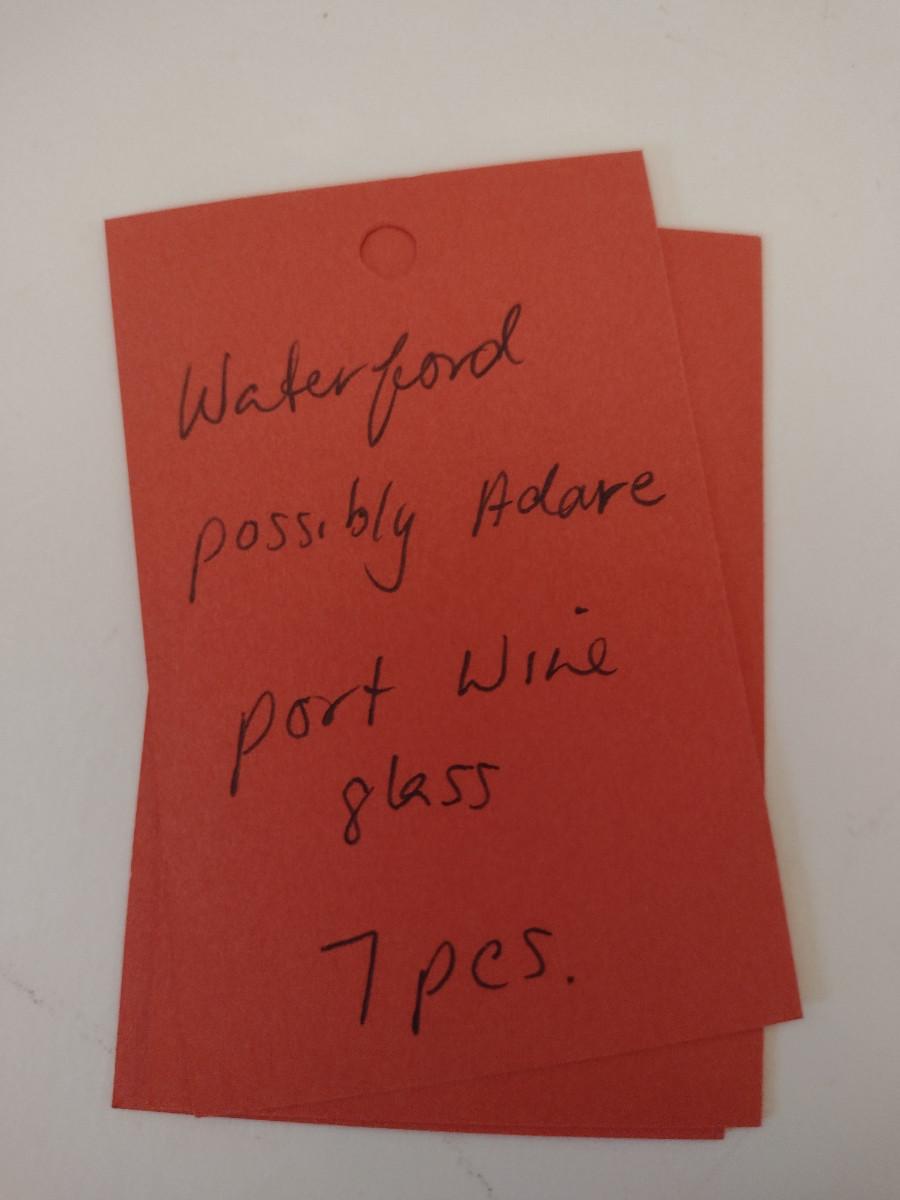 Waterford
possibly Adare
port Wine
glass
7 pcs.